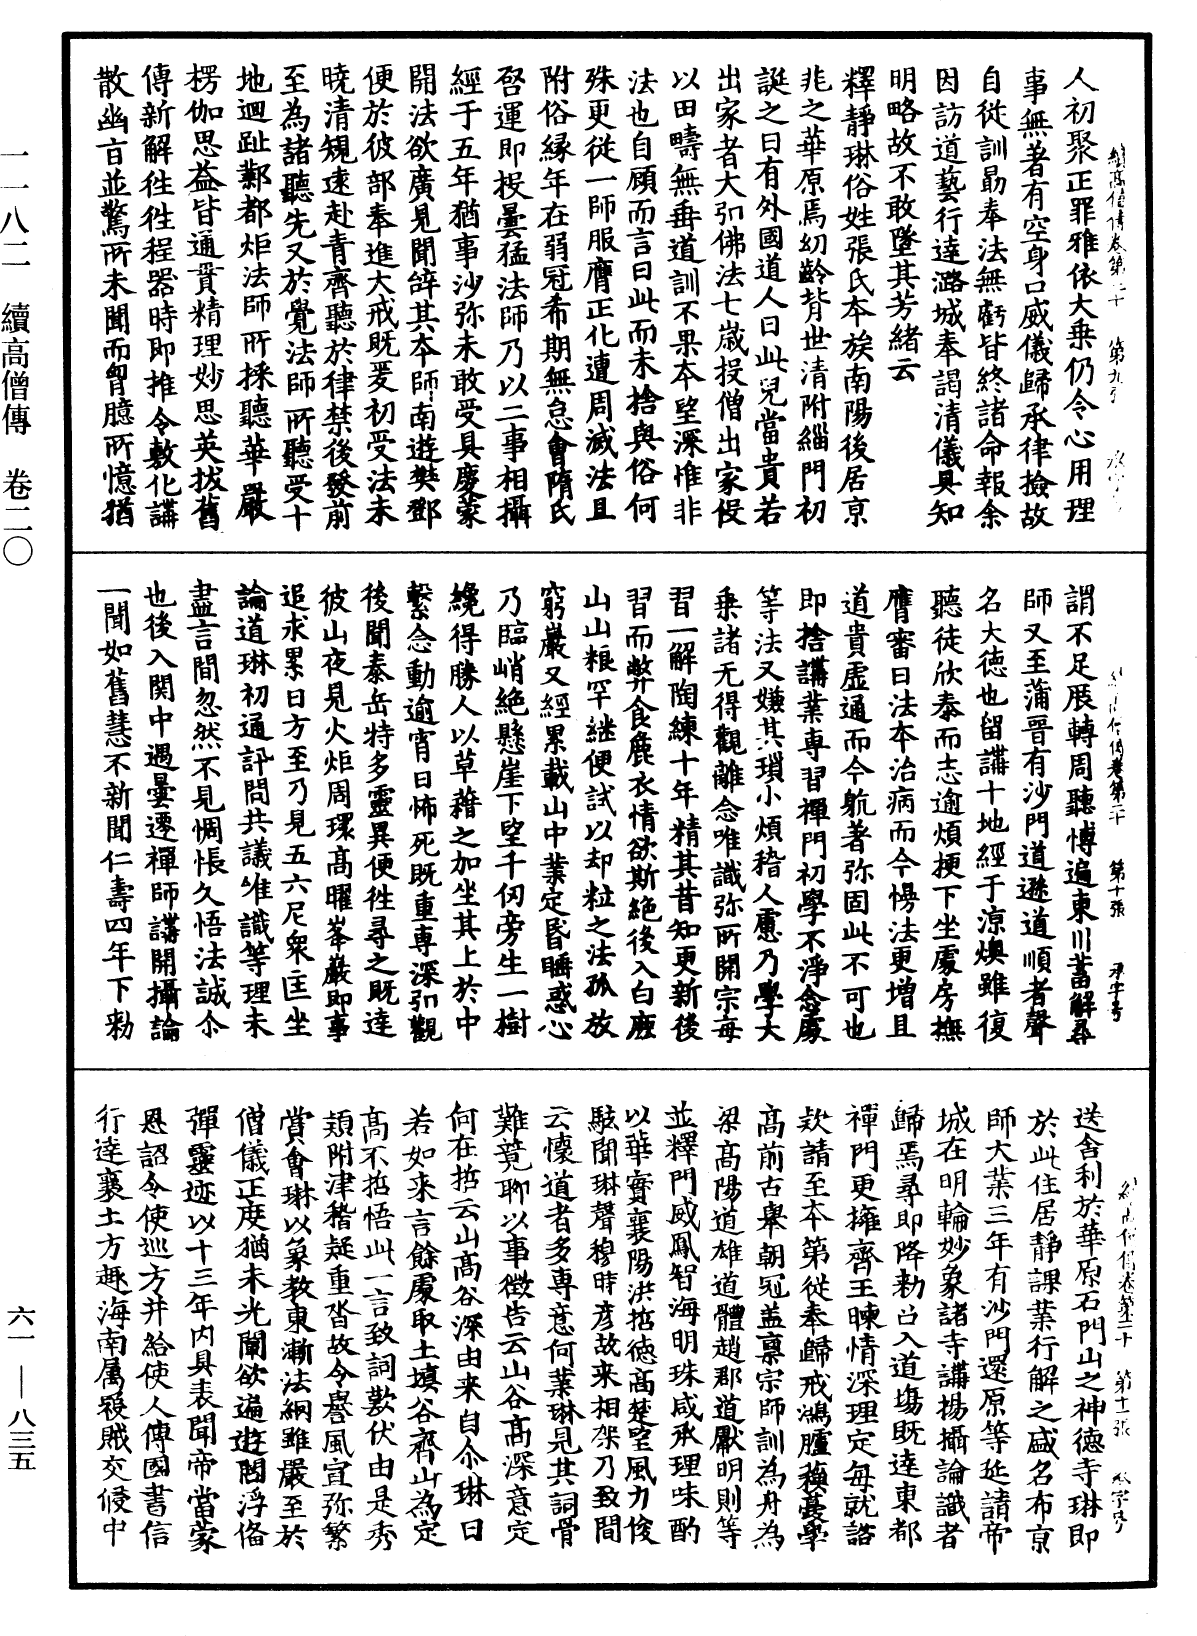 一一八二　續高僧傳　卷二〇
六一—八三五
人初聚正罪雅依大乗仍令心用理
事無著有空身口威儀歸承律撿故
自從訓勗奉法無虧皆終諸命報余
因訪道藝行達潞城奉謁清儀具知
明略故不敢墜其芳緒云
釋靜琳俗姓張氏夲族南陽後居京
兆之華原焉幼齡背世清附緇門初
誕之日有外國道人曰此兒當貴若
出家者大弘佛法七歲投僧出家侵
以田疇無垂道訓不果夲望深惟非
法也自顧而言曰此而未捨與俗何
殊更從一師服膺正化遭周滅法且
附俗緣年在弱冠希期無怠會隋氏
啓運即投曇猛法師乃以二事相攝
經于五年猶事沙弥未敢受具慶蒙
開法欲廣見聞辤其夲師南遊樊鄧
便於彼部奉進大戒既爰初受法未
曉清規速赴青齊聽於律禁後發前
至為諸聽先又於覺法師所聽受十
地迴趾鄴都炬法師所採聽華嚴
楞伽思益皆通貫精理妙思英拔舊
傳新解往往程器時即推令敷化講
散幽旨並驚所未聞而胷臆所憶猶
謂不足展轉周聽慱遍東川蓄解尋
師又至蒲晉有沙門道遜道順者聲
名大徳也留講十地經于涼燠雖復
聽徒欣泰而志逾煩梗下坐處房撫
膺審曰法本治病而今慢法更增且
道貴虛通而今躭著弥固此不可也
即捨講業専習禪門初學不淨念處
等法又嫌其瑣小煩稽人慮乃學大
乗諸无得觀離念唯識弥所開宗每
習一解陶練十年精其昔知更新後
習而弊食麁衣情欲斯絕後入白鹿
山山粮罕継便試以却粒之法孤放
窮巖又經累載山中業定昏睡惑心
乃臨峭絕懸崖下望千仞旁生一樹
纔得勝人以草藉之加坐其上於中
繫念動逾宵日怖死既重專深弘觀
後聞泰岳特多靈異便往尋之既達
彼山夜見火炬周環高曜峯巖即事
追求累日方至乃見五六尼衆匡坐
論道琳初通訊問共議唯識等理未
盡言間忽然不見惆悵久悟法誠尒
也後入関中遇曇遷禪師講開攝論
一聞如舊慧不新聞仁壽四年下勑
送舍利於華原石門山之神德寺琳即
於此住居靜課業行解之盛名布京
師大業三年有沙門還原等延請帝
城在明輪妙象諸寺講揚攝論識者
歸焉尋即降勑召入道塲既達東都
禪門更擁齊王暕情深理定毎就諮
欵請至夲第從奉歸戒鴻臚蘇夔學
高前古舉朝冠盖禀宗師訓為舟為
梁高陽道雄道體趙郡道獻明則等
並釋門威鳳智海明珠咸承理味酌
以華實襄陽洪哲徳高楚望風力俊
駭聞琳聲穆時彥故来相架乃致問
云懷道者多專意何業琳見其詞骨
難竟聊以事徵告云山谷高深意定
何在哲云山高谷深由来自尒琳曰
若如来言餘處取土填谷齊山為定
高不哲悟此一言致詞歎伏由是秀
頴附津稽疑重沓故令譽風宣弥繁
賞會琳以象教東漸法網雖嚴至於
僧儀正度猶未光闡欲遍遊閻浮俻
彈靈迹以十三年内具表聞帝當蒙
恩詔令使巡方并給使人傳國書信
行達襄土方趣海南属寇賊交侵中